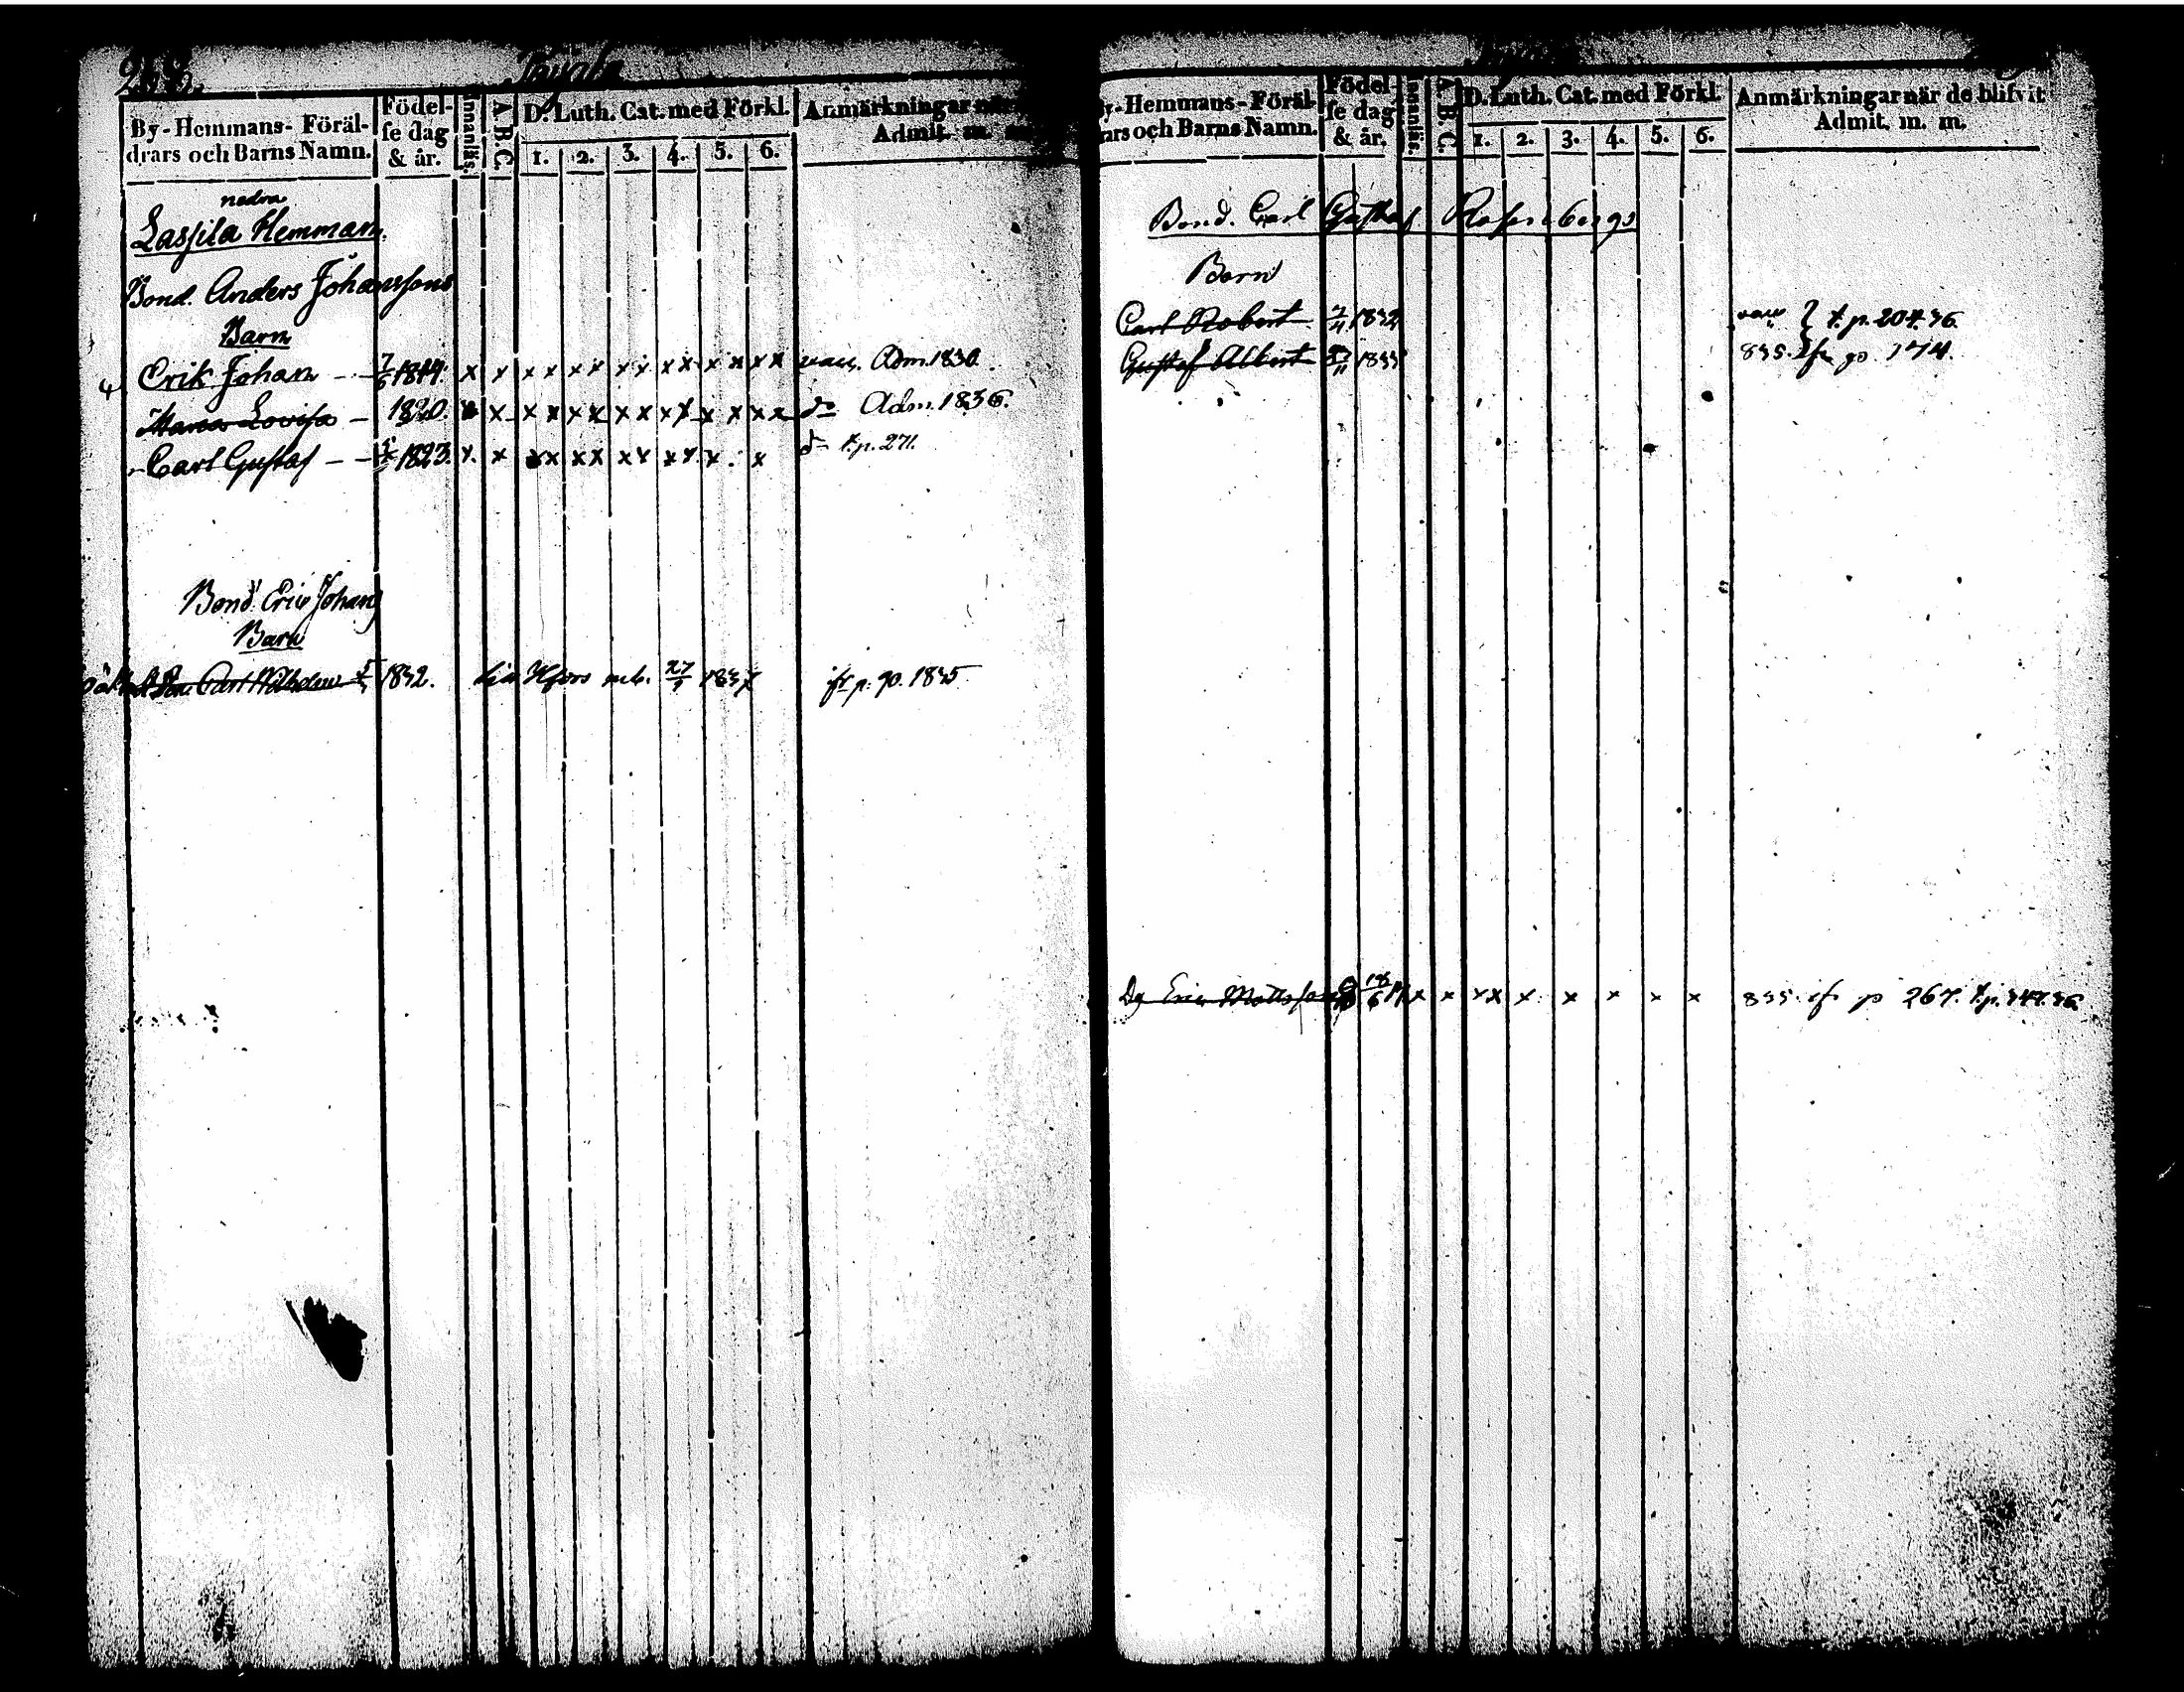 268.
By-Hemmans- Föräl-
drars och Barns Namn.
Födel-
se dag
& år.
Innanläs.
A. B. C.
D. Luth. Cat. med Förkl.
1. 2. 3. 4. 5. 6.
Anmärkningar när
Admit. m. m.
nedra
Lassila Hemman.
Bond. Anders Johanssons
Barn
Erik Johan 1814. x x x x x x x x x x x x x x vacc. Adm. 1830.
Maria Lovisa 1820. x x x x x x x x x x x x x x do Adm. 1836.
Carl Gustaf 1823. x x x x x x x x x x x x do t.p. 271.
Bond. Eric Johans
Barn
Carl Wilhelm 1832. Hfors 27/9 ifr p. 90. 1835.
By-Hemmans- Föräl-
drars och Barns Namn.
Födel-
se dag
& år.
Innanläs.
A. B. C.
D. Luth. Cat. med Förkl.
1. 2. 3. 4. 5. 6.
Anmärkningar när de blifvit
Admit. m. m.
Bond. Carl Gustaf Rosenbergs
Barn
Carl Robert 1832 vacc } t.p. 204. 36.
Gustaf Albert 1835. ifr
Dg Eric Mattsson x x x x x x x x x 835. ifr p 267. t.p.